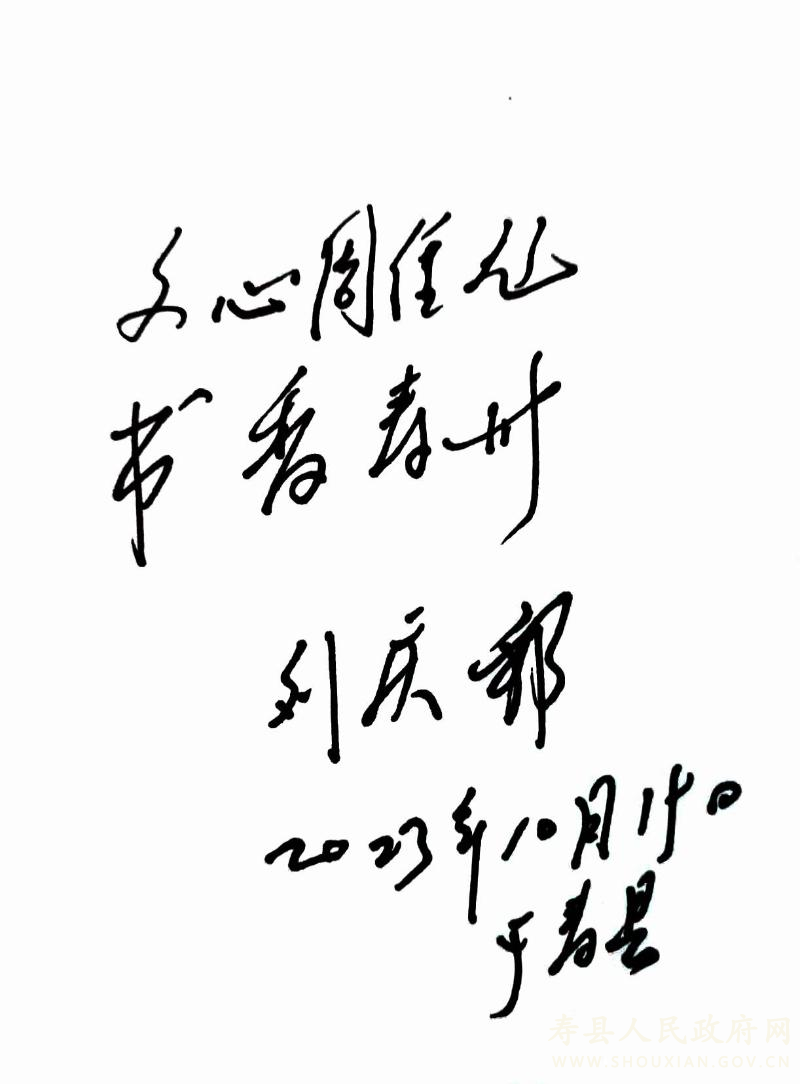 文心雕龙
书香寿州
刘庆邦
2023年10月15日
于寿县
寿县人民政府网
WWW.SHOUXIAN.GOV.CN